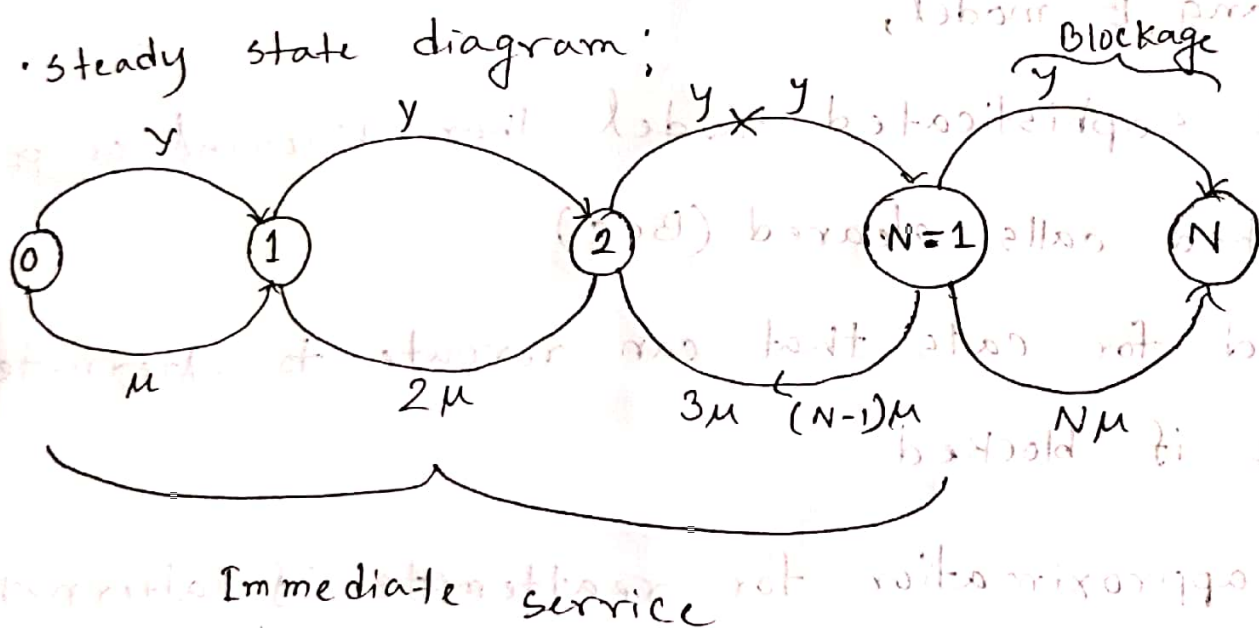 • steady state diagram;
Blockage
y y y y y
0 1 2 N=1 N
μ 2μ 3μ (N-1)μ Nμ
Immediate service